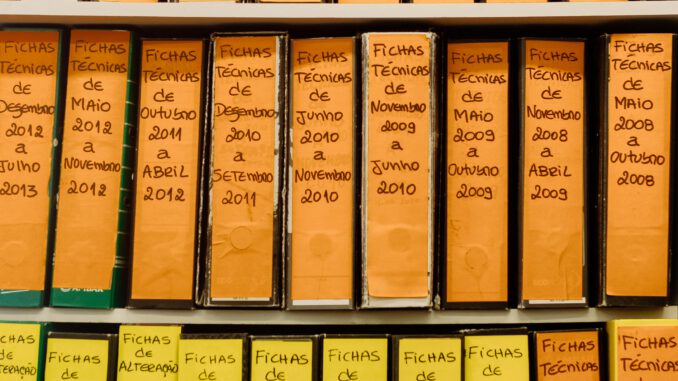 FICHAS
TÉCNICAS
de
Dezembro
2012
a
Julho
2013
FICHAS
TÉCNICAS
de
MAIO
2012
a
NOVEMBRO
2012
FICHAS
TÉCNICAS
de
OUTUBRO
2011
a
ABRIL
2012
FICHAS
TÉCNICAS
de
DEZEMBRO
2010
a
SETEMBRO
2011
FICHAS
TÉCNICAS
de
JUNHO
2010
a
NOVEMBRO
2010
FICHAS
TÉCNICAS
de
NOVEMBRO
2009
a
JUNHO
2010
FICHAS
TÉCNICAS
de
MAIO
2009
a
OUTUBRO
2009
FICHAS
TÉCNICAS
de
NOVEMBRO
2008
a
ABRIL
2009
FICHAS
TÉCNICAS
de
MAIO
2008
a
OUTUBRO
2008
FICHAS
DE
FICHAS
DE
FICHAS
DE
ALTERAÇÃO
FICHAS
DE
FICHAS
DE
FICHAS
DE
FICHAS
DE
FICHAS
DE
FICHAS
TÉCNICAS
FICHAS
TÉCNICAS